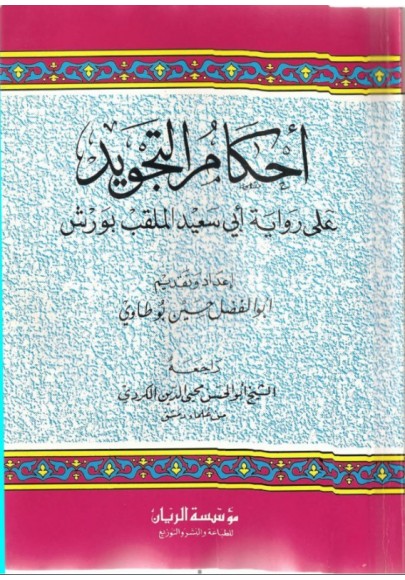 أحكام التجويد
على رواية أبي سعيد الملقب بورش
إعداد وتقديم
ابو الفضل حسين بوطاوي
راجعه
الشيخ أبو الحسن محيي الدين الكردي
من علماء دمشق
مؤسسة الريان
للطباعة والنشر والتوزيع